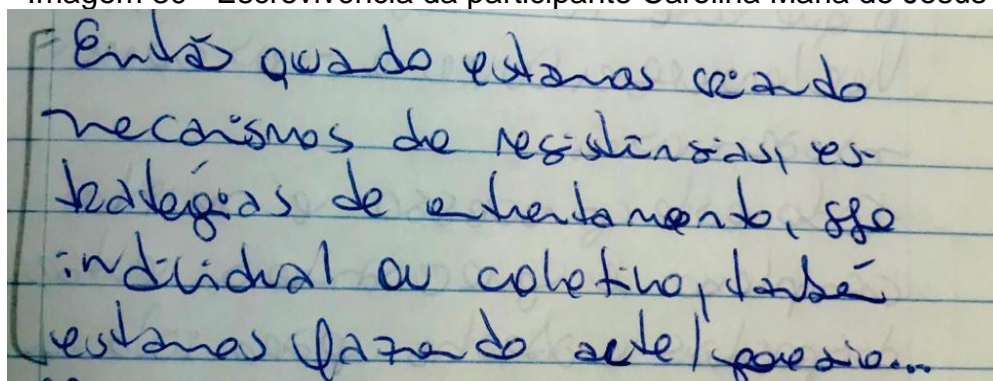 Imagem 30 - Escrevivência da participante Carolina Maria de Jesus
Então quado estamos criando
mecanismos de resistênsias, es-
tratégias de enfrentamento, seje
individual ou coletivo, também
estamos fazendo arte/poesia...